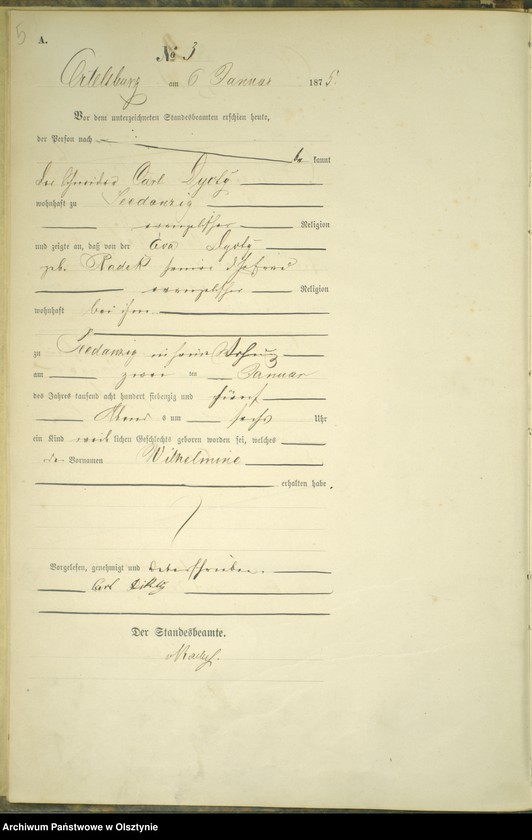 5
A.
№ 3
Ortelsburg am 6 Januar 1875.
Vor dem unterzeichneten Standesbeamten erschien heute,
der Person nach be kannt
der Schneider Carl
wohnhaft zu
evangelischer Religion
und zeigte an, daß von der Eva
geb. Radek seiner Ehefrau
evangelischer Religion
wohnhaft bei ihm
zu in seiner Wohnung
am zwei ten Januar
des Jahres tausend acht hundert siebenzig und fünf
Abend s um sechs Uhr
ein Kind weib lichen Geschlechts geboren worden sei, welches
den Vornamen Wilhelmine
erhalten habe.
Vorgelesen, genehmigt und unterschrieben.
Carl
Der Standesbeamte.
Archiwum Państwowe w Olsztynie